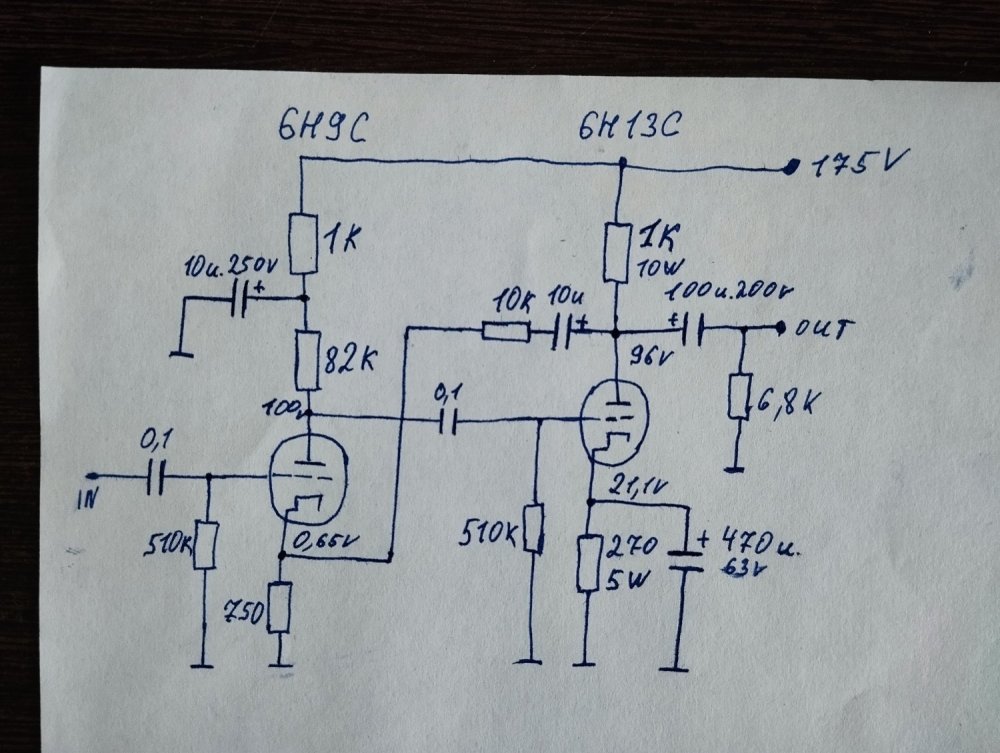 6Н9С
6Н13С
175V
1K
1K
10W
10u.250v
+
10K
10u
+
100u.200v
+
OUT
82K
96v
100v
0,1
6,8K
0,1
IN
21,1v
510K
0,65v
510K
270
5W
+ 470u.
63v
750